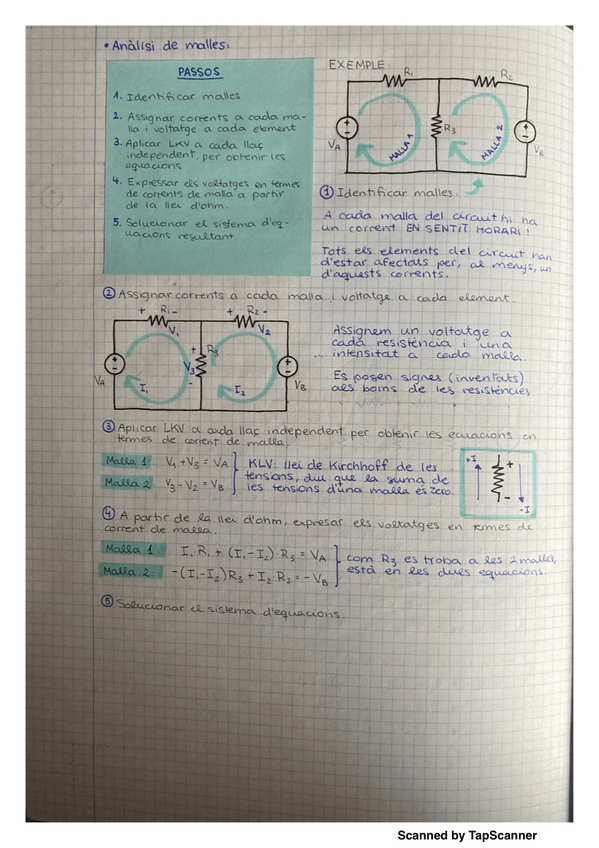 • Anàlisi de malles:
PASSOS
1. Identificar malles
2. Assignar corrents a cada ma-
lla i voltatge a cada element
3. Aplicar LKV a cada llaç
independent, per obtenir les
equacions
4. Expressar els voltatges en termes
de corrents de malla a partir
de la llei d'ohm.
5. Solucionar el sistema d'eq-
uacions resultant.
EXEMPLE:
R₁ R₂
R₃
VA VB
MALLA 1 MALLA 2
① Identificar malles:
A cada malla del circuit hi ha
un corrent EN SENTIT HORARI!
Tots els elements del circuit han
d'estar afectats per, al menys, un
d'aquests corrents.
② Assignar corrents a cada malla i voltatge a cada element.
+ R₁ - + R₂ -
V₁ V₂
+ R₃
V₃
-
VA I₁ I₂ VB
Assignem un voltatge a
cada resistència i una
intensitat a cada malla.
Es posen signes (inventats)
als borns de les resistències.
③ Aplicar LKV a cada llaç independent per obtenir les equacions en
termes de corrent de malla.
Malla 1 V₁ + V₃ = VA
Malla 2 V₃ - V₂ = VB
KLV: llei de Kirchhoff de les
tensions, diu que la suma de
les tensions d'una malla és zero.
+I + - -I
④ A partir de la llei d'ohm, expresar els voltatges en termes de
corrent de malla.
Malla 1: I₁ · R₁ + (I₁ - I₂) · R₃ = VA
Malla 2: -(I₁ - I₂) R₃ + I₂ · R₂ = - VB
com R₃ es troba a les 2 malles,
està en les dues equacions.
⑤ Solucionar el sistema d'equacions.
Scanned by TapScanner